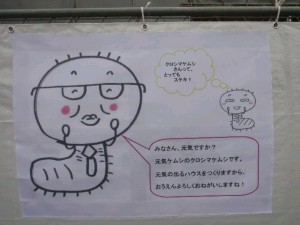 クロシマケムシ
さんって、
とっても
ステキ！
みなさん、元気ですか？
元気ケムシのクロシマケムシです。
元気の出るハウスをつくりますから、
おうえんよろしくおねがいしますね！